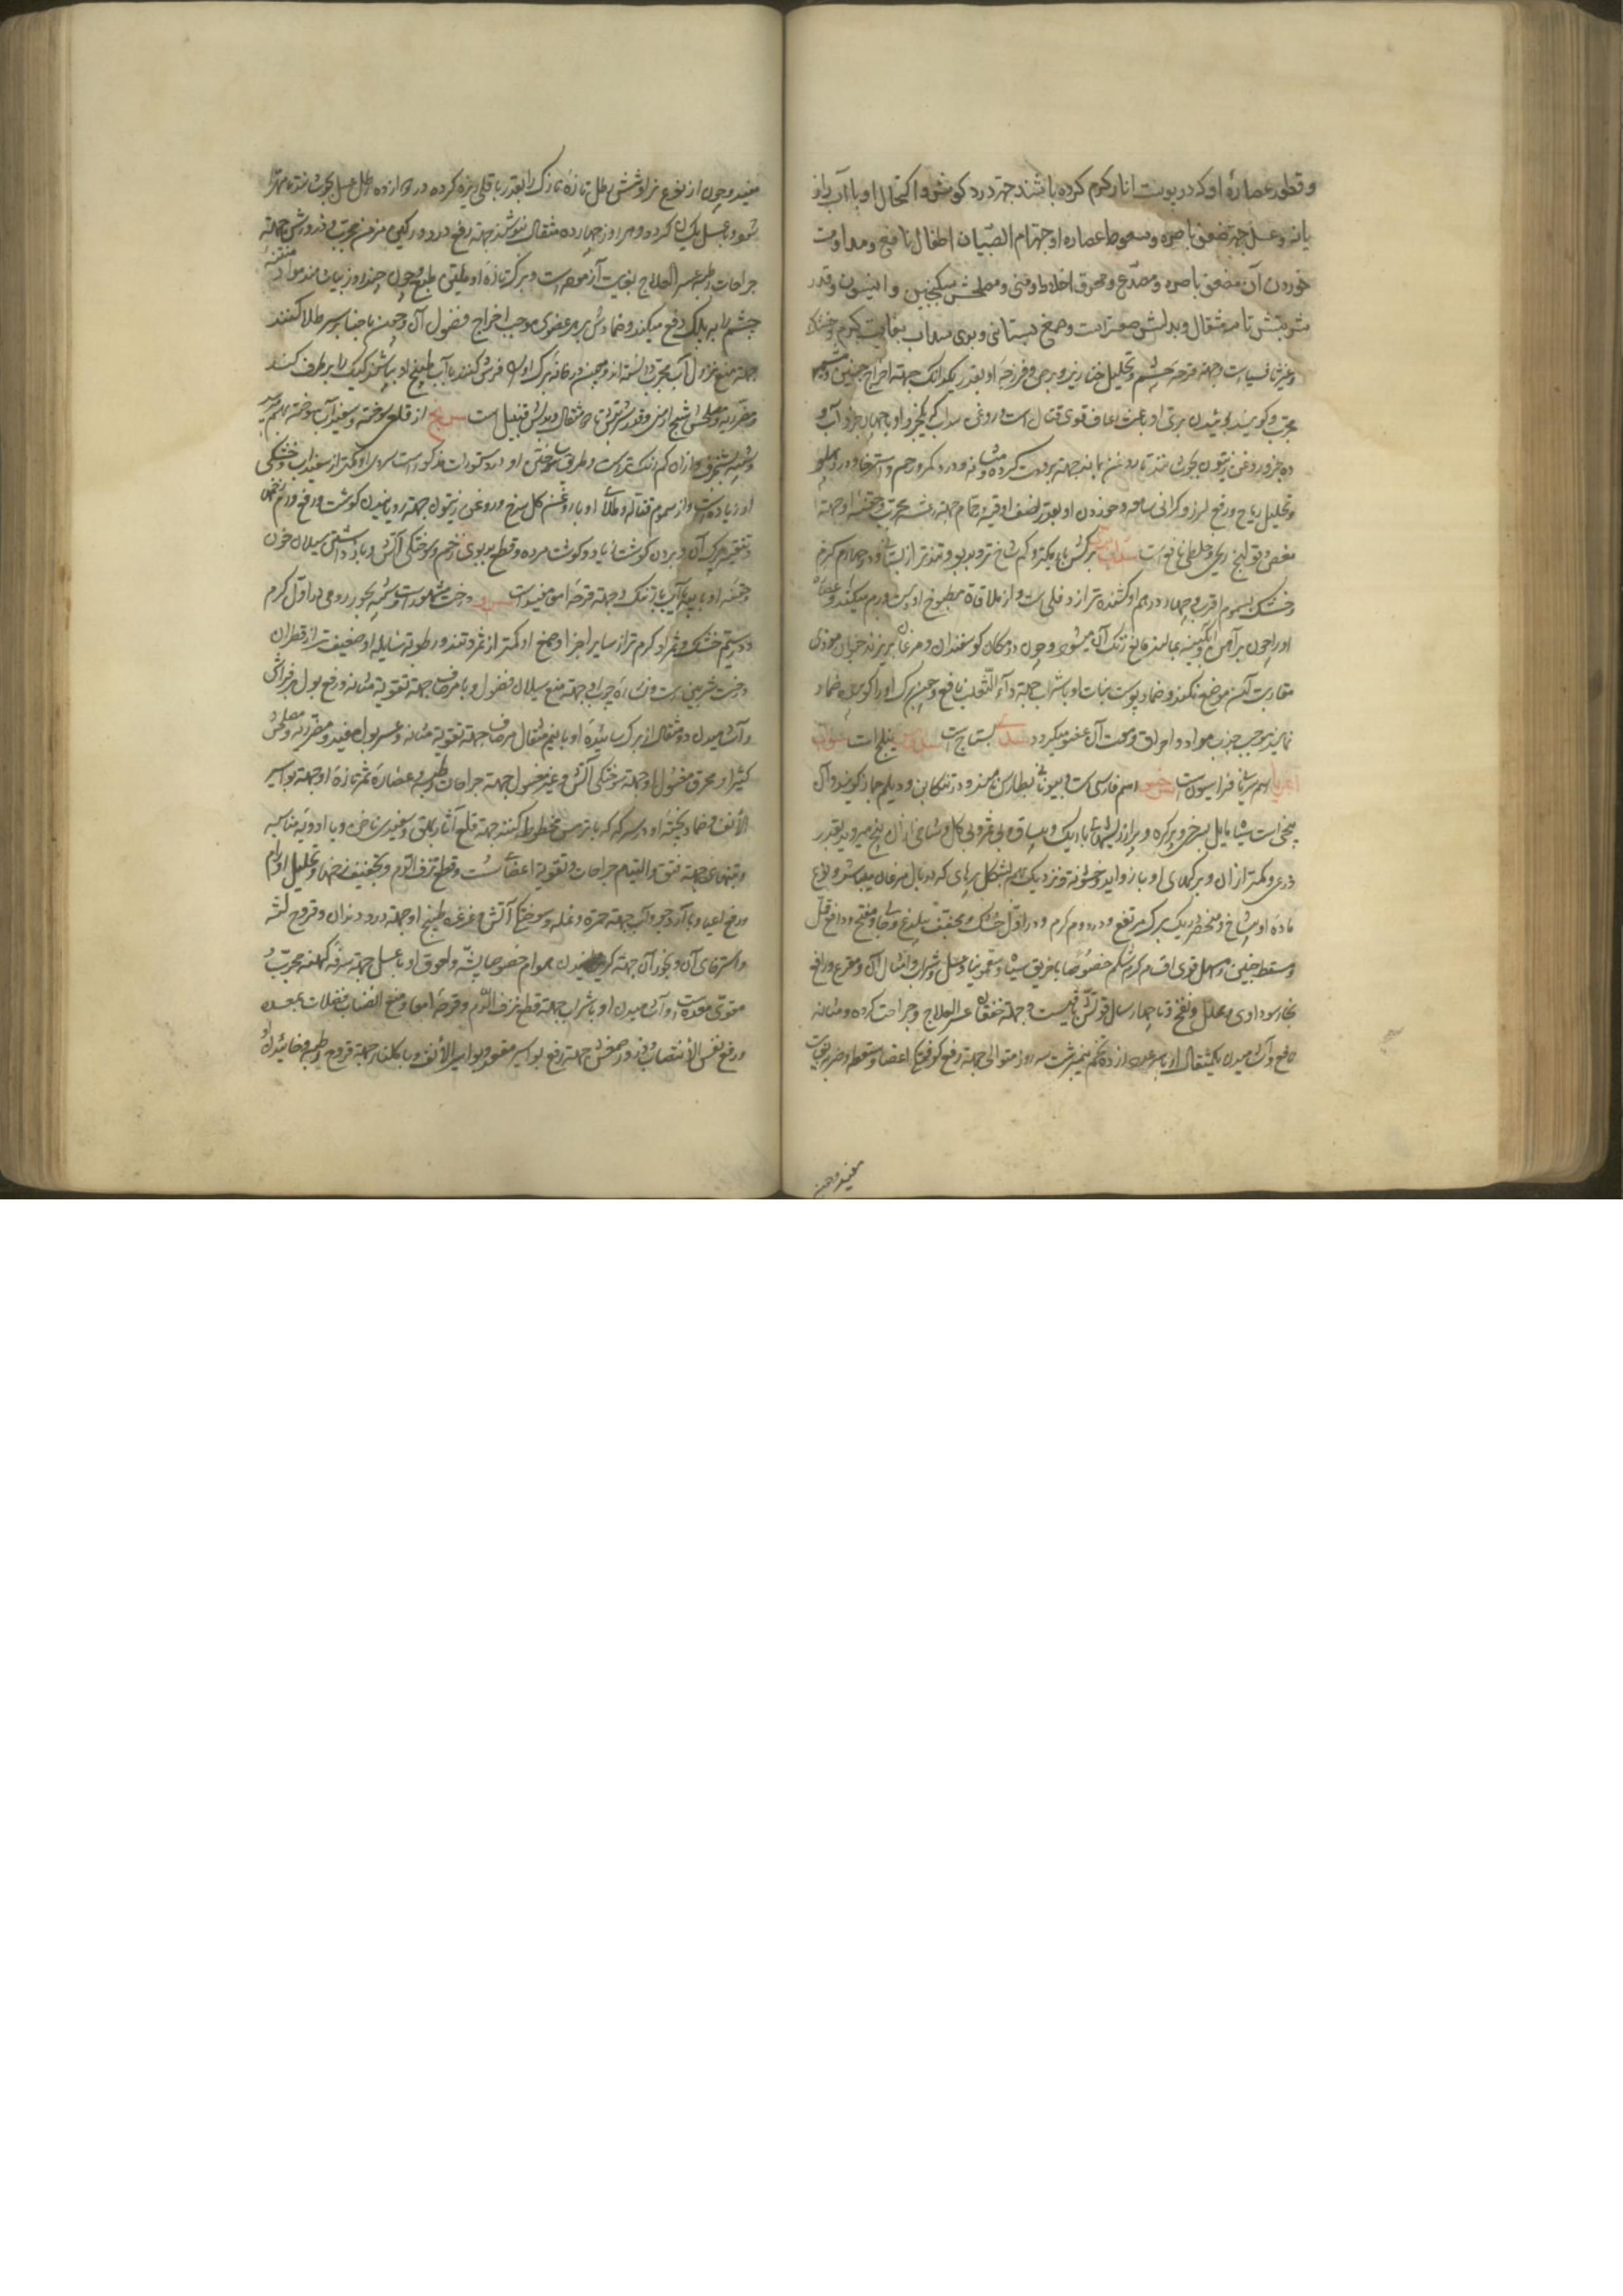 و قطور عصارهٔ او که در پوست انار گرم کرده باشند جهة درد گوش و اکتحال او با آب رازیانه
و عسل جهة ضعف باصره و سعوط عصاره او جهة ام الصبیان اطفال نافع و مداومت
خوردن آن مضعف باصره و مصدع و محرق اخلاط و منی و مصلحش سکنجبین و انیسون و قدر
شربتش تا سه مثقال و بدلش صعتر است و صمغ بستانی و بری سداب بغایت گرم و خشک
جهة قرحه چشم و تحلیل خنازیر و برص و فرزجه او بقدر یکدانگ جهة اخراج جنین و مشیمه
مجرب و گویند بوئیدن بری او باعث رعاف قوی قتال است و روغن سداب که یکجزو او با چهار جزو آب و
ده جزو روغن زیتون بجوشانند تا روغن بماند جهة برودت گرده و مثانه و درد کمر و رحم و استرخا و درد پهلو
و تحلیل ریاح و رفع لرز و گرانی سامعه و خوردن او بقدر نصف اوقیه در حمام جهة رعشه مجرب و حقنه او جهة
مغص و قولنج ریحی و خلطی نافع است سداب بری برگش باریکتر و کم شاخ تر و بدبو و تندتر از بستانی و در چهارم گرم
و خشک بسموم اقرب و چهار درهم او کشنده تر از دفلی است و از ملاقاة مطبوخ او پوست ورم میکند و عصاره
او را چون بر آهن و آبگینه بمالند مانع زنگ آن میشود و چون در مکان گوسفندان و مرغان بریزند حیوان موذی
مقاربت آن موضع نکند و ضماد پوست نبات او با شراب جهة داء الثعلب نافع و چون برگ او را کوبیده ضماد
نمایند موجب جذب مواد و احراق و سرعت آن عضو میگردد سدی بستاج است
اسم سریانی فراسیون است سرخس اسم فارسی است و بیونانی بطارس نامند و در تنکابن و دیلم جماز گویند و آن
بیخی است سیاه مایل بسرخی و پر گره و پر از ریشهای باریک و بیساق و بی ثمر و بی گل و شاخی از آن بیخ میروید بقدر
ذرعی و کمتر از آن و برگهای او با زواید و خشونة و نزدیک بهم بشکل پرهای که در بال مرغان میباشد و نوع
ماده او بیشاخ و منحصر در یک برگ مرتفع و در دوم گرم و در اول خشک و مجفف بی لذع و جالی و مفتح و دافع قمل
و مسقط جنین و مسهل قوی اقسام کرم شکم خصوصا با خربق سیاه و سقمونیا و عسل و شراب و امثال آن و مقرع و رافع
بخار سوداوی و محلل نفخ و تا چهار سال قوتش باقیست و جهة خفقان عسر العلاج و جراحت گرده و مثانه
نافع و آشامیدن یکمثقال او با سه عدد زرده تخم نیمبرشت سه روز متوالی جهة رفع کوفتگی اعضا و سقطه و ضربه بغایت
مفید و چون
مفید و چون از نوع نر او شش رطل تازهٔ نازک را بقدر باقلی ریزه کرده در دوازده رطل عسل بجوشانند تا مهرا
شود و با عسل یکسان کرده و هر روز چهارده مثقال بنوشند جهة رفع درد ورکین مزمن مجرب و ذرورش جهة
جراحات رطبه عسر العلاج بغایت آزموده است و برگ تازهٔ او ملین طبع و چون چند روز بیاشامند مواد منتنه
چشم را به پلک دفع میکند و ضمادش بر هر عضوی موجب اخراج فضول آن و چون با حنا بر سر طلا کنند
جهة منع نزول آب مجرب دانسته اند و چون در خانه برگ او را فرش کنند یا آب طبیخ او بپاشند کیک را برطرف کند
و مضر ریه و مصلحش شیح ارمنی و قدر شربتش تا دو مثقال و بدلش قنبیل است سرنج از قلعی سوخته و سفیداب سوخته بهم میرسد
و شبیه بشنجرف و از آن کم رنگ تر است و طریق سوختن او در دستورات مذکور است سردی او کمتر از سفیداب و خشکی
او زیاده است و از سموم قتاله و طلای او با روغن گل سرخ و روغن زیتون جهة رویانیدن گوشت و رفع ورم زخمها
و تنقیه چرک آن و بردن گوشت زیاد و گوشت مرده و قطع بدبوی زخم و سوختگی آتش و باز داشتن سیلان خون
و حقنه او با پیه یا آب بارتنگ جهة قرحهٔ امعا مفید است سرو درخت مشهور است و شبیه بحور رومی در اول گرم
و در سیم خشک و ثمر او گرم تر از سایر اجزا و صمغ او کمتر از ثمر و تند و رطوبة سایله او ضعیف تر از قطران
درخت شربین است و نشارهٔ چوب او جهة منع سیلان فضول و با مرصاف جهة تقویة مثانه و رفع بول در فراش
و آشامیدن دو مثقال از برگ سائیدهٔ او با نیم مثقال مرصاف جهة تقویة مثانه و عسر بول مفید و مضر ریه و مصلحش
کثیرا و محرق مغسول او جهة سوختگی آتش و غیر مغسول جهة جراحات رطبه و عصارهٔ ثمر تازهٔ او جهة بواسیر
الانف و ضماد پخته او در سرکه که با ترمس مخلوط کنند جهة قلع آثار بهق و سفیدی ناخن و با ادویه مناسبه
و تنهای جهة فتق و التیام جراحات و تقویة اعضای سست و قطع نزف الدم و تجفیف زخمها و تحلیل اورام
و رفع اعیا و با آرد جو و آب جهة حمره و نمله و سوختگی آتش و غرغره طبیخ او جهة درد دندان و قروح لثه
و استرخای آن و بخور آن جهة گریزانیدن هوام خصوصا پشه و لعوق او با عسل جهة سرفه کهنه مجرب
مقوی معده است و آشامیدن او با شراب جهة قطع نزف الدم و قرحهٔ امعا و منع انصباب فضلات بمعده
و رفع نفس الانتصاب و ذرور صمغش جهة رفع بواسیر مقعد و بواسیر الانف و با گلنار جهة قروح رطبه و خائیدن